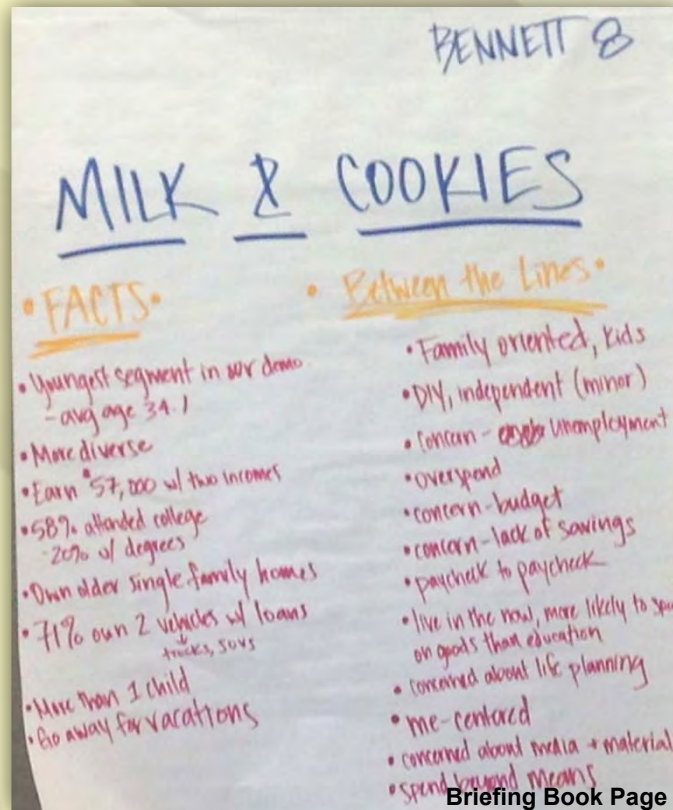 BENNETT 8
MILK & COOKIES
• FACTS •
• Youngest segment in our demo
- avg age 34.1
• More diverse
• Earn $57,000 w/ two incomes
• 58% attended college
- 20% w/ degrees
• Own older single family homes
• 71% own 2 vehicles w/ loans
trucks, SUVs
• More than 1 child
• Go away for vacations
• Between the Lines •
• Family oriented, kids
• DIY, independent (minor)
• Concern - unemployment
• overspend
• concern - budget
• concern - lack of savings
• paycheck to paycheck
• live in the now, more likely to
on goods than education
• concerned about life planning
• me-centered
• concerned about media + material
• spend beyond means
Briefing Book Page